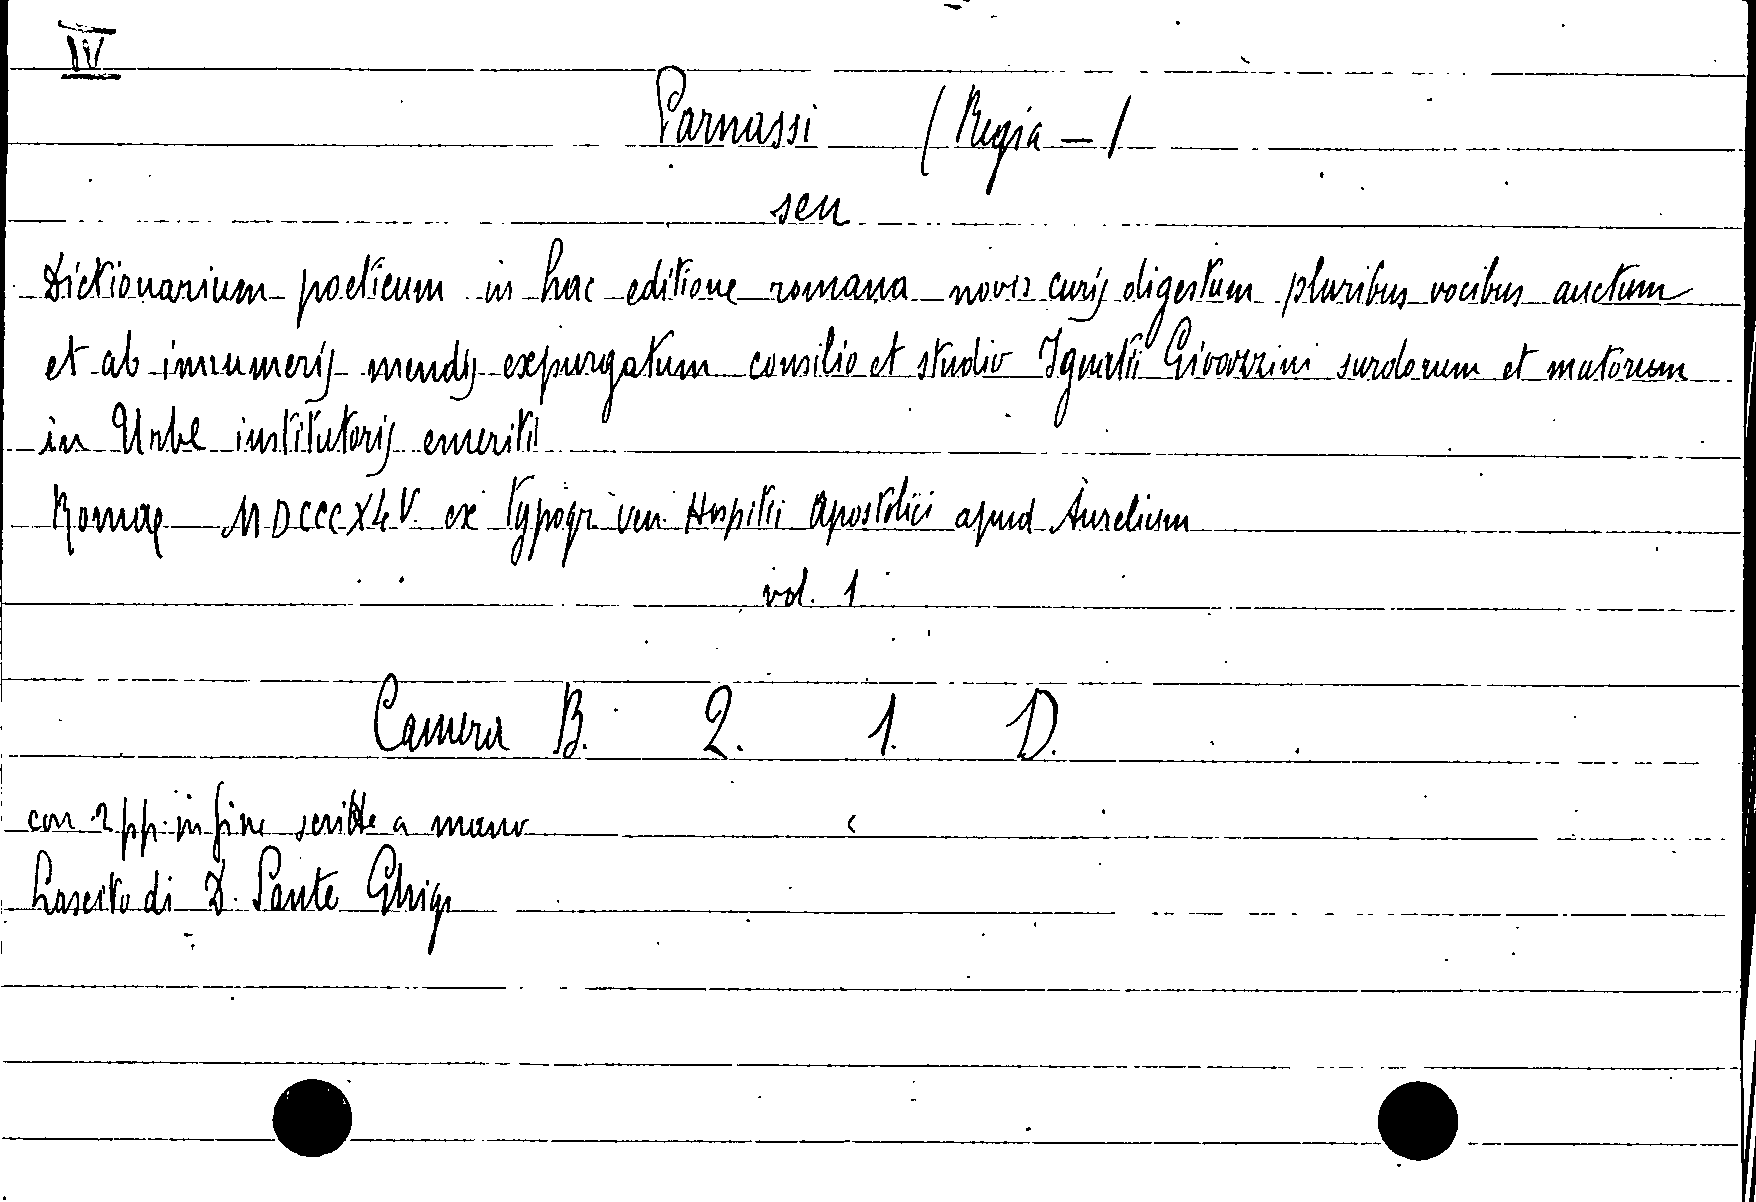 IV
Parnassi ( Regia - )
seu
Dictionarium poeticum in hac editione romana novis curis digestum pluribus vocibus auctum
et ab innumeris mendis expurgatum consilio et studio Ignatii surdorum et mutorum
in Urbe institutoris emeriti
Romae MDCCCXLV. ex typogr. ven. Hospitii Apostolici apud Aurelium
vol. 1
Camera B. 2. 1. D.
con 2 pp. in fine scritte a mano
Lascito di D. Sante Ghigi